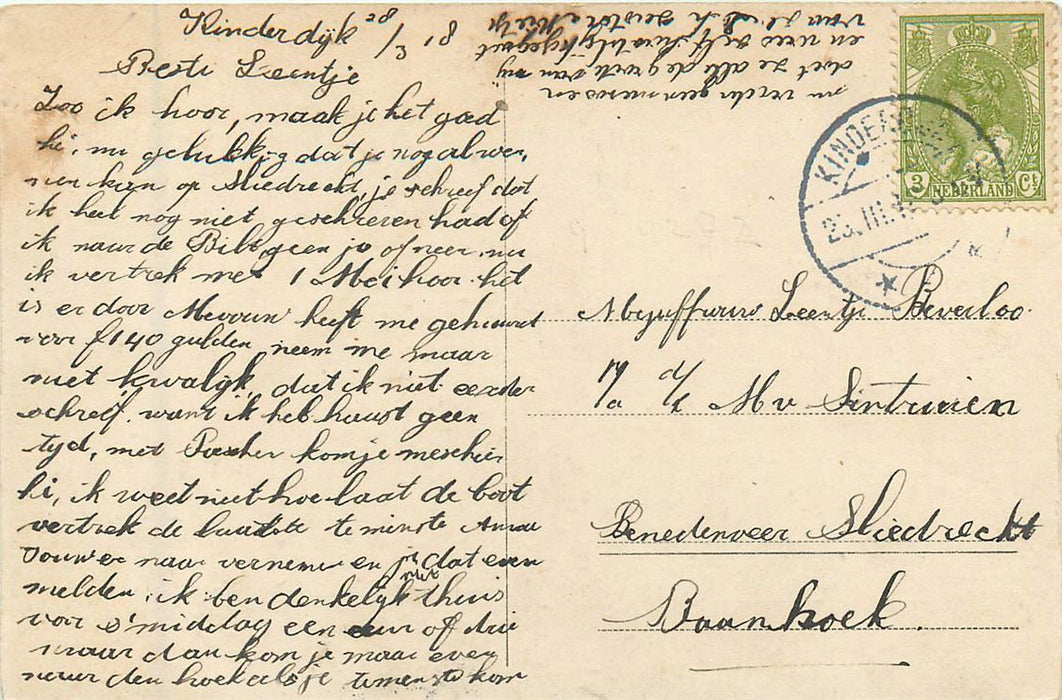 Kinderdijk 28/3 18
Beste Leentje
Zoo ik hoor, maak je het goed
hé, nu gelukkig dat je nog al wen,
nen kan op Sliedrecht, je schreef dat
ik heel nog niet geschreven had of
ik naar de Bilt, geen jo of neen, nu
ik vertrek met 1 Mei hoor het
is er door Mevrouw heeft me gehuurd
voor f140 gulden, neem me maar
niet kwalijk, dat ik niet eerder
schreef, want ik heb haast geen
tijd, met Paschen kom je messchien
hé, ik weet niet hoe laat de boot
vertrek de laatste te minste Anna
zouw er naar vernemen en dat even
melden, ik ben denkelijk niet thuis
voor s'middag een uur of drie
maar dan kom je maar even
naar den hoek als je teminste kom
nu verder geen nieuws en
doet ze alle de groete van mij
en wees zelf hartelijk gegroet
van je
Mejuffrouw Leentje Beverloo
p/a d/h Mv
Benedenveer Sliedrecht
Baanhoek.
KINDERDIJK
28.III.1
3 NEDERLAND Ct